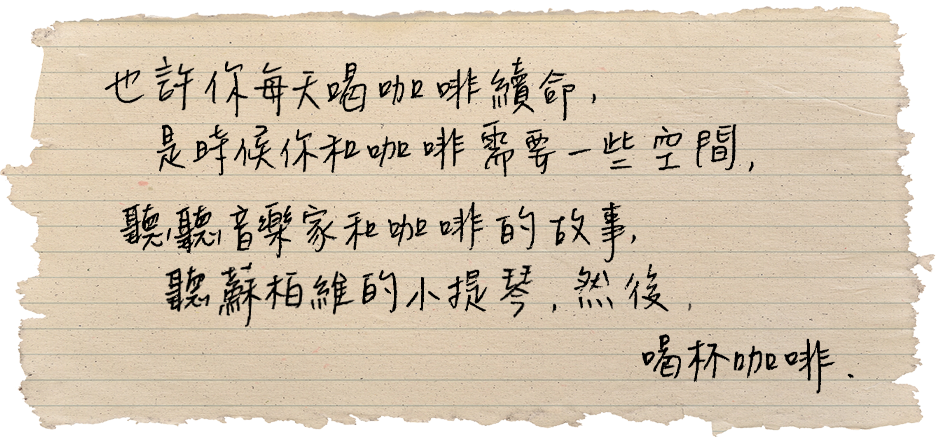 也許你每天喝咖啡續命,
是時候你和咖啡需要一些空間,
聽聽音樂家和咖啡的故事,
聽蘇柏維的小提琴,然後,
喝杯咖啡.